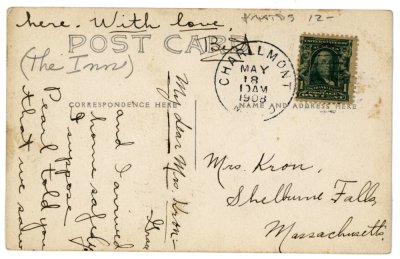 here. With love,
POST CARD
(The Inn)
CHARLEMONT
MAY
18
10AM
1908
CORRESPONDENCE HERE
NAME AND ADDRESS HERE
My dear Mrs. Kron -
Grace
and I arrived
home safely.
I suppose
Pearl told you
that we saw
Mrs. Kron,
Shelburne Falls,
Massachusetts.